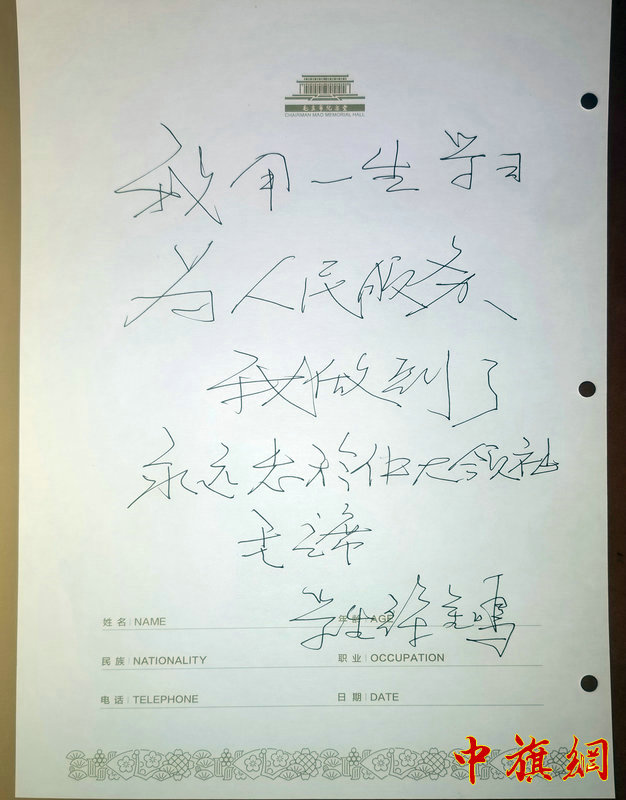 毛主席纪念堂
CHAIRMAN MAO MEMORIAL HALL
我用一生学习
为人民服务、
我做到了
永远忠於伟大领袖
毛主席
学生许金鸣
姓名 | NAME
年龄 | AGE
民族 | NATIONALITY
职业 | OCCUPATION
电话 | TELEPHONE
日期 | DATE
中旗網